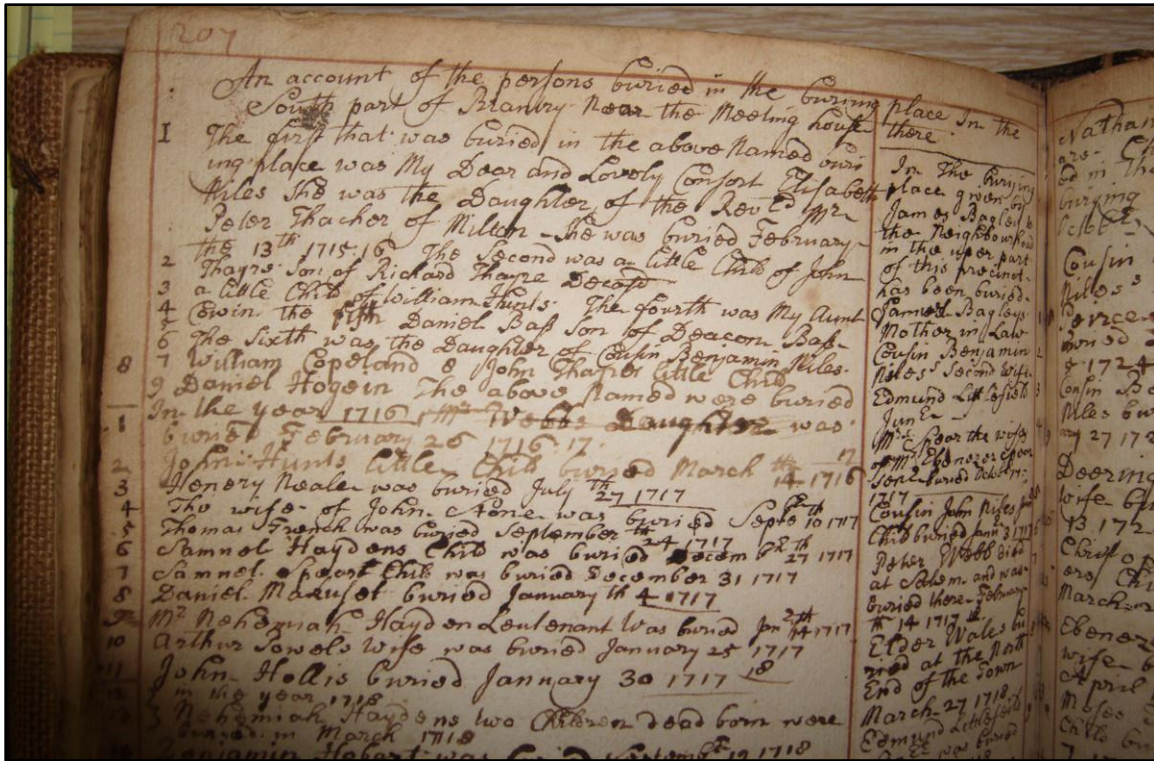 207
An account of the persons buried in the burying place In the
South part of Brantry Near the Meeting house there
I The first that was buried in the above Named buri
ing place was My Dear and Lovely Consort Elisabeth
Niles she was the Daughter of the Revd Mr
Peter Thacher of Milton - she was buried February
the 13th 1715,16 The Second was a little Child of John
2 Thayre Son of Richard Thayre Decesd
3 a little Child of William Hunts The fourth was My Aunt
4 Cowin the fifth Daniel Bass son of Deacon Bass
5
6 The Sixth was the Daughter of Cousin Benjamin Niles
8 7 William Copeland 8 John Thayres little Child
9 Daniel Hogein The above Named were buried
In the year 1716
1 Webbs Daughter was
buried February 26 1716 17
2 John Hunts little Child buried March 14 1716 17
3 Henery Neale was buried July 27th 1717
4 The wife of John was buried 10 1717
5 Thomas French was buried September 24th 1717
6 Samuel Haydens Child was buried 27 1717
7 Samuel Spears Child was buried December 31 1717
8 Daniel buried January th 4 1717
9 Mr Nehemiah Hayden Leutenant Was buried 14 1717
10 Arthur Sowels Wife was buried January 25 1717
11 John Hollis buried January 30 1717 18
12 In the year 1718
Nehemiah Haydens two Children dead born were
buried in March 1718
Benjamin Hobart was buried 12 1718
In The burying
place given by
James Bagley to
the Neighbourhood
in the uper part
of this precinct
has been buried
Samuel Bagleys
Mother in Law
Cousin Benjamin
Niles' Second Wife
Edmund Littlefield
Junr
Mrs Spear the wife
of Mr Ebenezer Spear
buried
1717
Cousin John Niles
Child buried 3 1717
Peter Webb died
at Salem and was
buried there February
th 14 1717
Elder Wales bu
ried at the North
End of the Town
March 27 1718
Edmund Littlefield
was buried
Nathan
are
ed in the
burying
Cousin
Niles
1724
Cousin Be
Niles bur
ary 27 172
Deering
wife
13 172
Christ
ers Chi
March
Ebenez
wife
April
Moses
Child